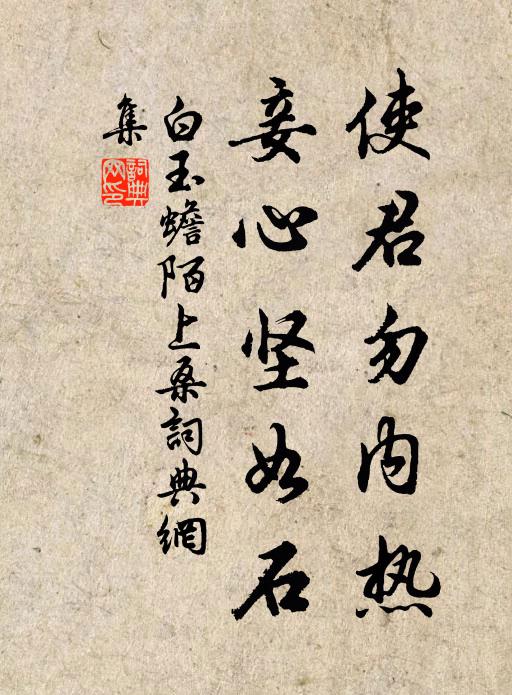 使君勿内热
妾心坚如石
白玉蟾陌上桑詞典網
集
詞典
网印